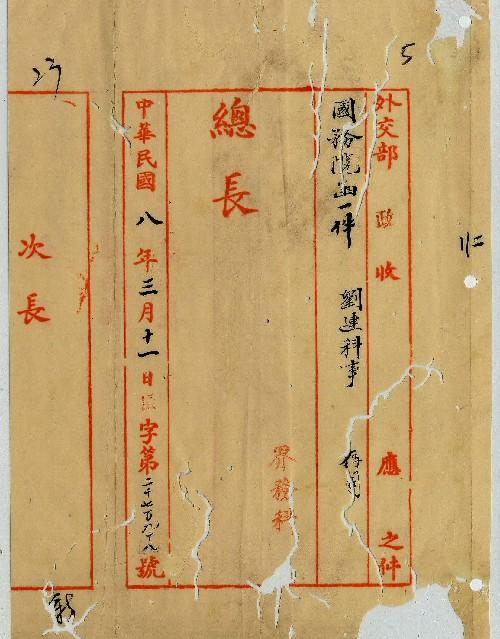 5
外交部 收 應 之件
國務院函一件 劉連科事
界務科
總長
中華民國八年三月十一日 字第二千七百九十八號
次長